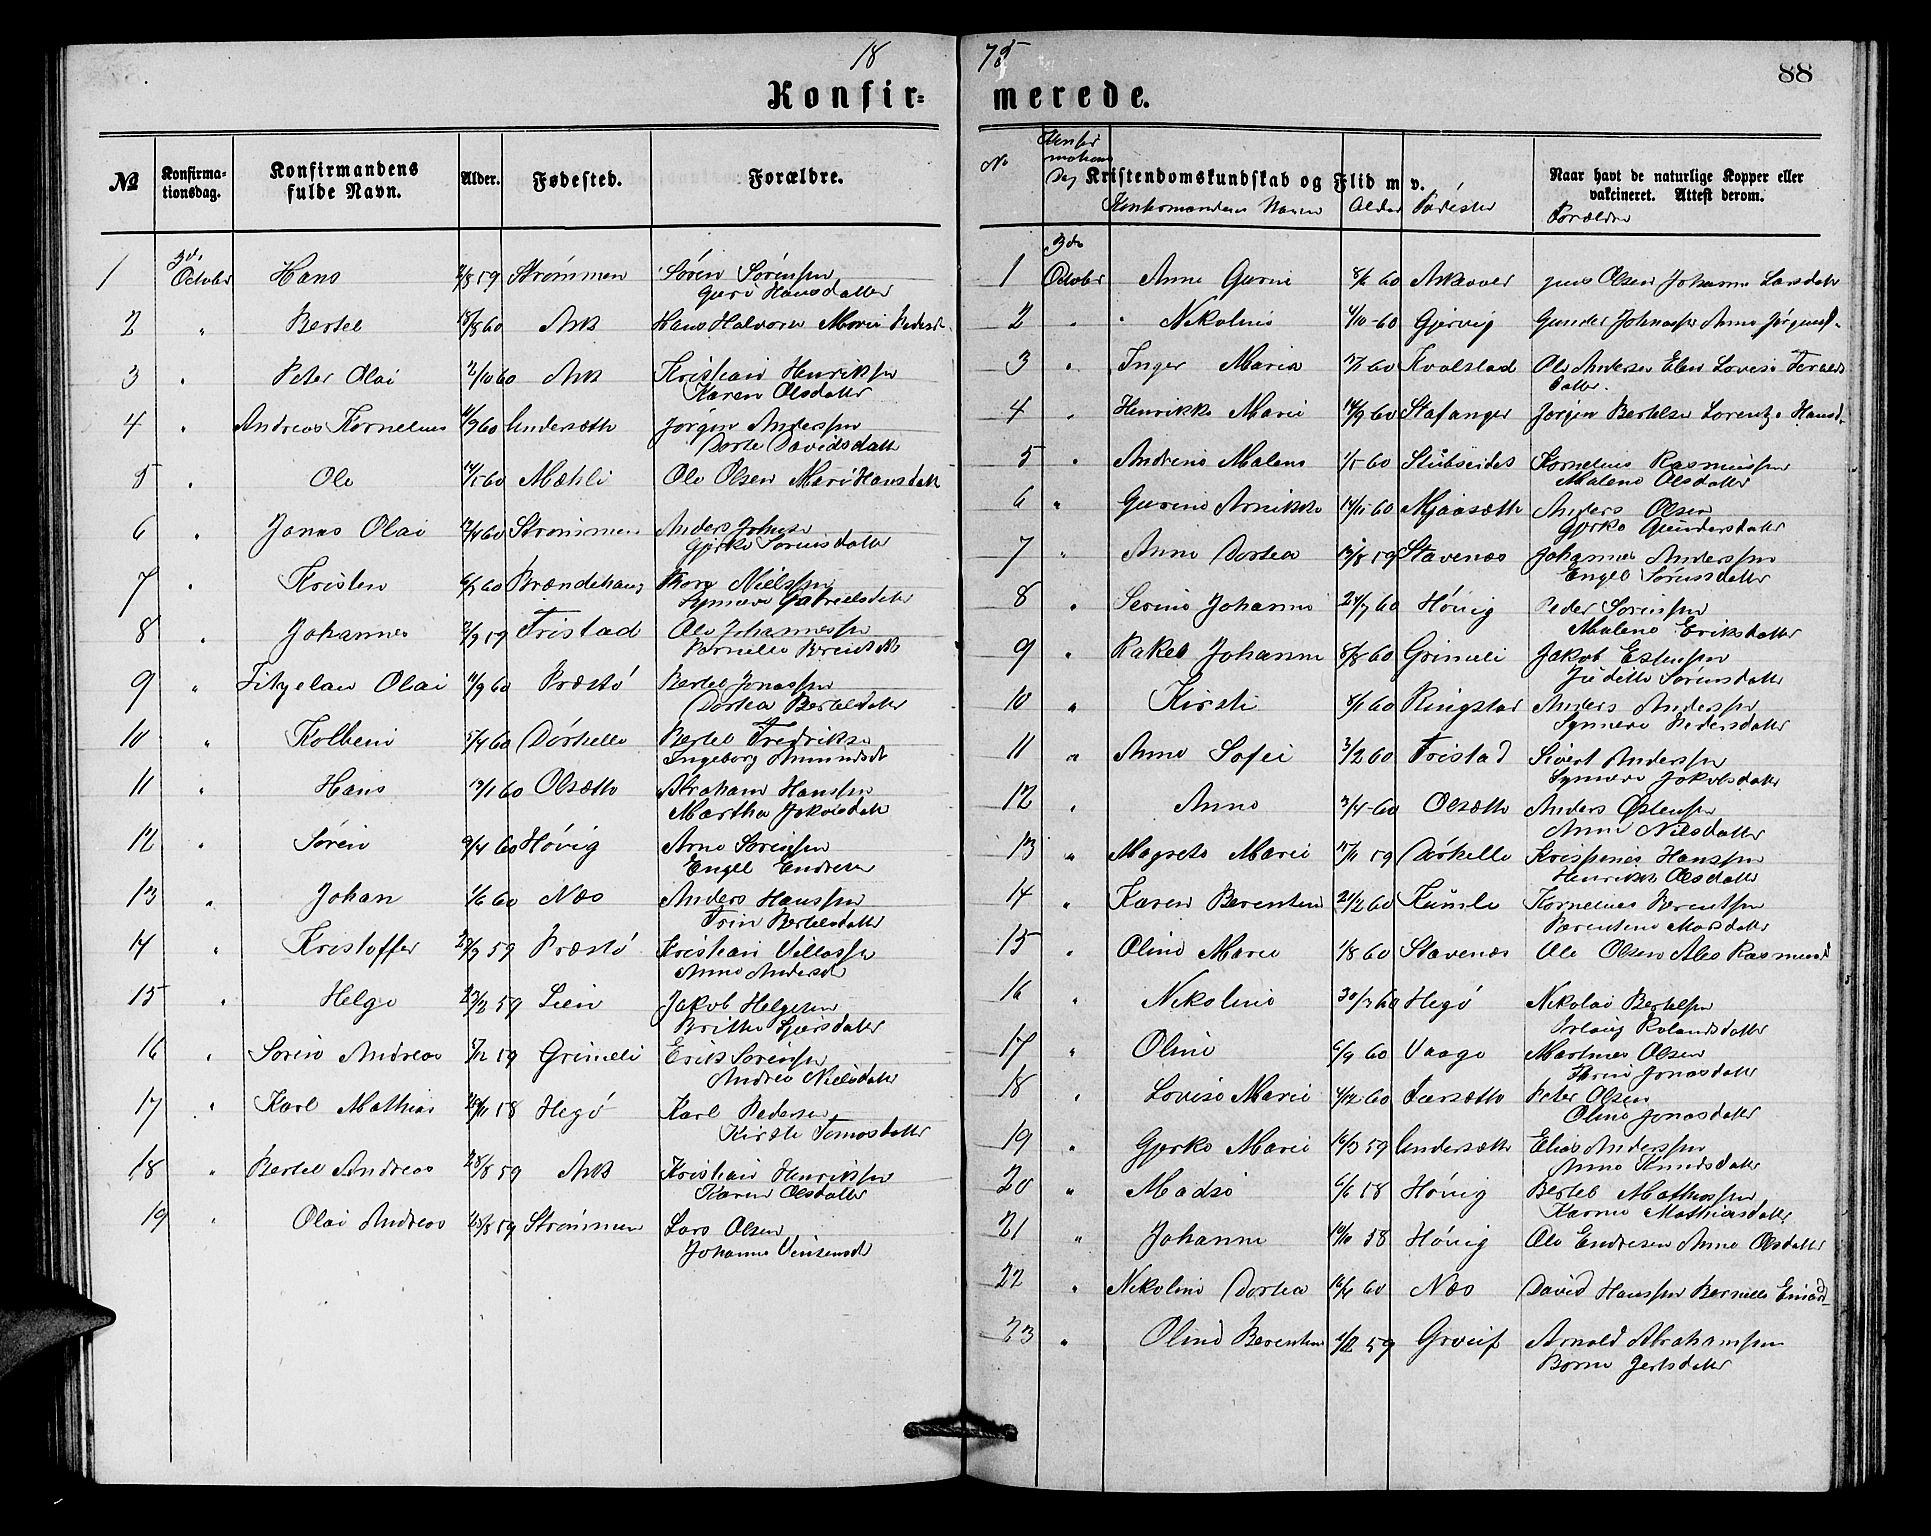 18 75
88
Konfir= merede.
№ Konfirma- tionsdag. Konfirmandens fulde Navn. Alder. Fødested. Forældre.
1 3de October Hans 59 Strømmen Søren Sørensen
Guri Hansdatter
2 " Bertel 18/8 60 Ask Hans Halvorsen Marie
3 " Peter Olai 2/10 60 Ask Kristian Henriksen
Karen Olsdatter
4 " Andreas Kornelius 11/9 60 Undersæth Jørgen Anderssen
Dorte Davidsdatt
5 " Ole 14/5 60 Mæhli Ole Olsen Mari Hansdatt
6 " Jonas Olai 2/4 60 Strømmen Anders
Gjerke Sørensdatter
7 " Kristen 60 Brændehaug Nielssen
Synneve Gabrielsdatter
8 " Johannes 2/9 59 Tristad Ole Johannessen
Pernille
9 " Olai 11/9 60 Præstø Bertel Jonassen
Dortea Bertelsdatter
10 " Kolbein 5/4 60 Dørhelle Bertel Fredrikse
Ingeborg
11 " Hans 19/1 60 Olsæth Abraham Hanssen
Martha Jakobsdatt
12 " Søren 9/4 60 Høvig Arne Sørensen
Engel
13 " Johan 1/6 60 Næs Anders Hanssen
Trin Bertelsdatter
14 " Kristoffer 59 Præstø Kristian Villassen
Anne Andersd
15 " Helge 59 Lien Jakob Helgesen
Brithe
16 " Søren Andreas 59 Grimeli Erik Sørensen
Andrea Nielsdatter
17 " Karl Mathias 58 Hegø Karl Pedersen
Kirsti Tomasdatter
18 " Bertel Andreas 28/8 59 Ask Kristian Henriksen
Karen Olsdatter
19 " Olai Andreas 28/8 59 Strømmen Lars Olsen
Johanne
№ Konfirmations Dag Kristendomskundskab og Flid m. v. Naar havt de naturlige Kopper eller vakcineret. Attest derom.
Konfirmandens Navn Alder Fødested Forældre
1 3de October Anne Gurine 8/6 60 Askevold Jens Olsen Johanne Larsdatt
2 " Nikoline 4/10 60 Gjervig Gunder Anne
3 " Inger Maria 60 Kvalstad Ole Andersen Elen Lovise
datter.
4 " Henrikke Marie 14/9 60 Stafanger Jørgen Bertelse Lorentze Hansd
5 " Andrine Malene 1/5 60 Stubseidet Kornelius Rasmussen
Malene Olsdatter
6 " Gurine Arnikke 14/11 60 Mjaasæth Anders Olsen
Gjerke Gundersdatter
7 " Anne Dortea 59 Stavenæs Johannes Anderssen
Engel Sørensdatter
8 " Serine Johanne 24/7 60 Høvig Peder Sørensen
Malene Eriksdatter
9 " Rakel Johanne 8/8 60 Grimeli Jakob
Judithe Sørensdatter
10 " Kirsti 60 Ringstad Anders Anderssen
Synneve Pedersdatter
11 " Anne Sofie 3/2 60 Tristad Sivert Anderssen
Synneve Jakobsdatter
12 " Anne 3/4 60 Olsæth Anders Østensen
Anne Nilsdatter
13 " Magrete Marie 17/11 59 Dørhelle Hanssen
Henrikke Olsdatter
14 " Karen Berentine 21/2 60 Kumle Kornelius Berentsen
Berentine
15 " Oline Marie 1/8 60 Stavenæs Ole Olsen Ales Rasmusd
16 " Nikoline 30/7 60 Hegø Nikolai Bertelsen
Rolandsdatter
17 " Oline 6/9 60 Vaage Martinus Olsen
Jonasdatter
18 " Lovise Marie 4/12 60 Peter Olsen
Oline Jonasdatter
19 " Gjerke Marie 16/3 59 Undersæth Elias Anderssen
Anne Knudsdatter
20 " Madse 6/6 58 Høvig Bertel Mathiassen
Karne Mathiasdatter
21 " Johanne 58 Høvig Ole Endresen Anne Olsdatter
22 " Nikoline Dortea 16/6 60 Næs David Hanssen Pernille
23 " Oline Berentine 59 Arnold Abrahamssen